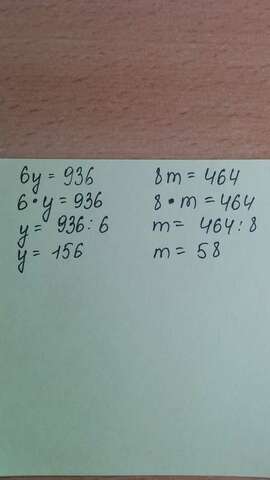 6y = 936
6 · y = 936
y = 936 : 6
y = 156
8m = 464
8 · m = 464
m = 464 : 8
m = 58